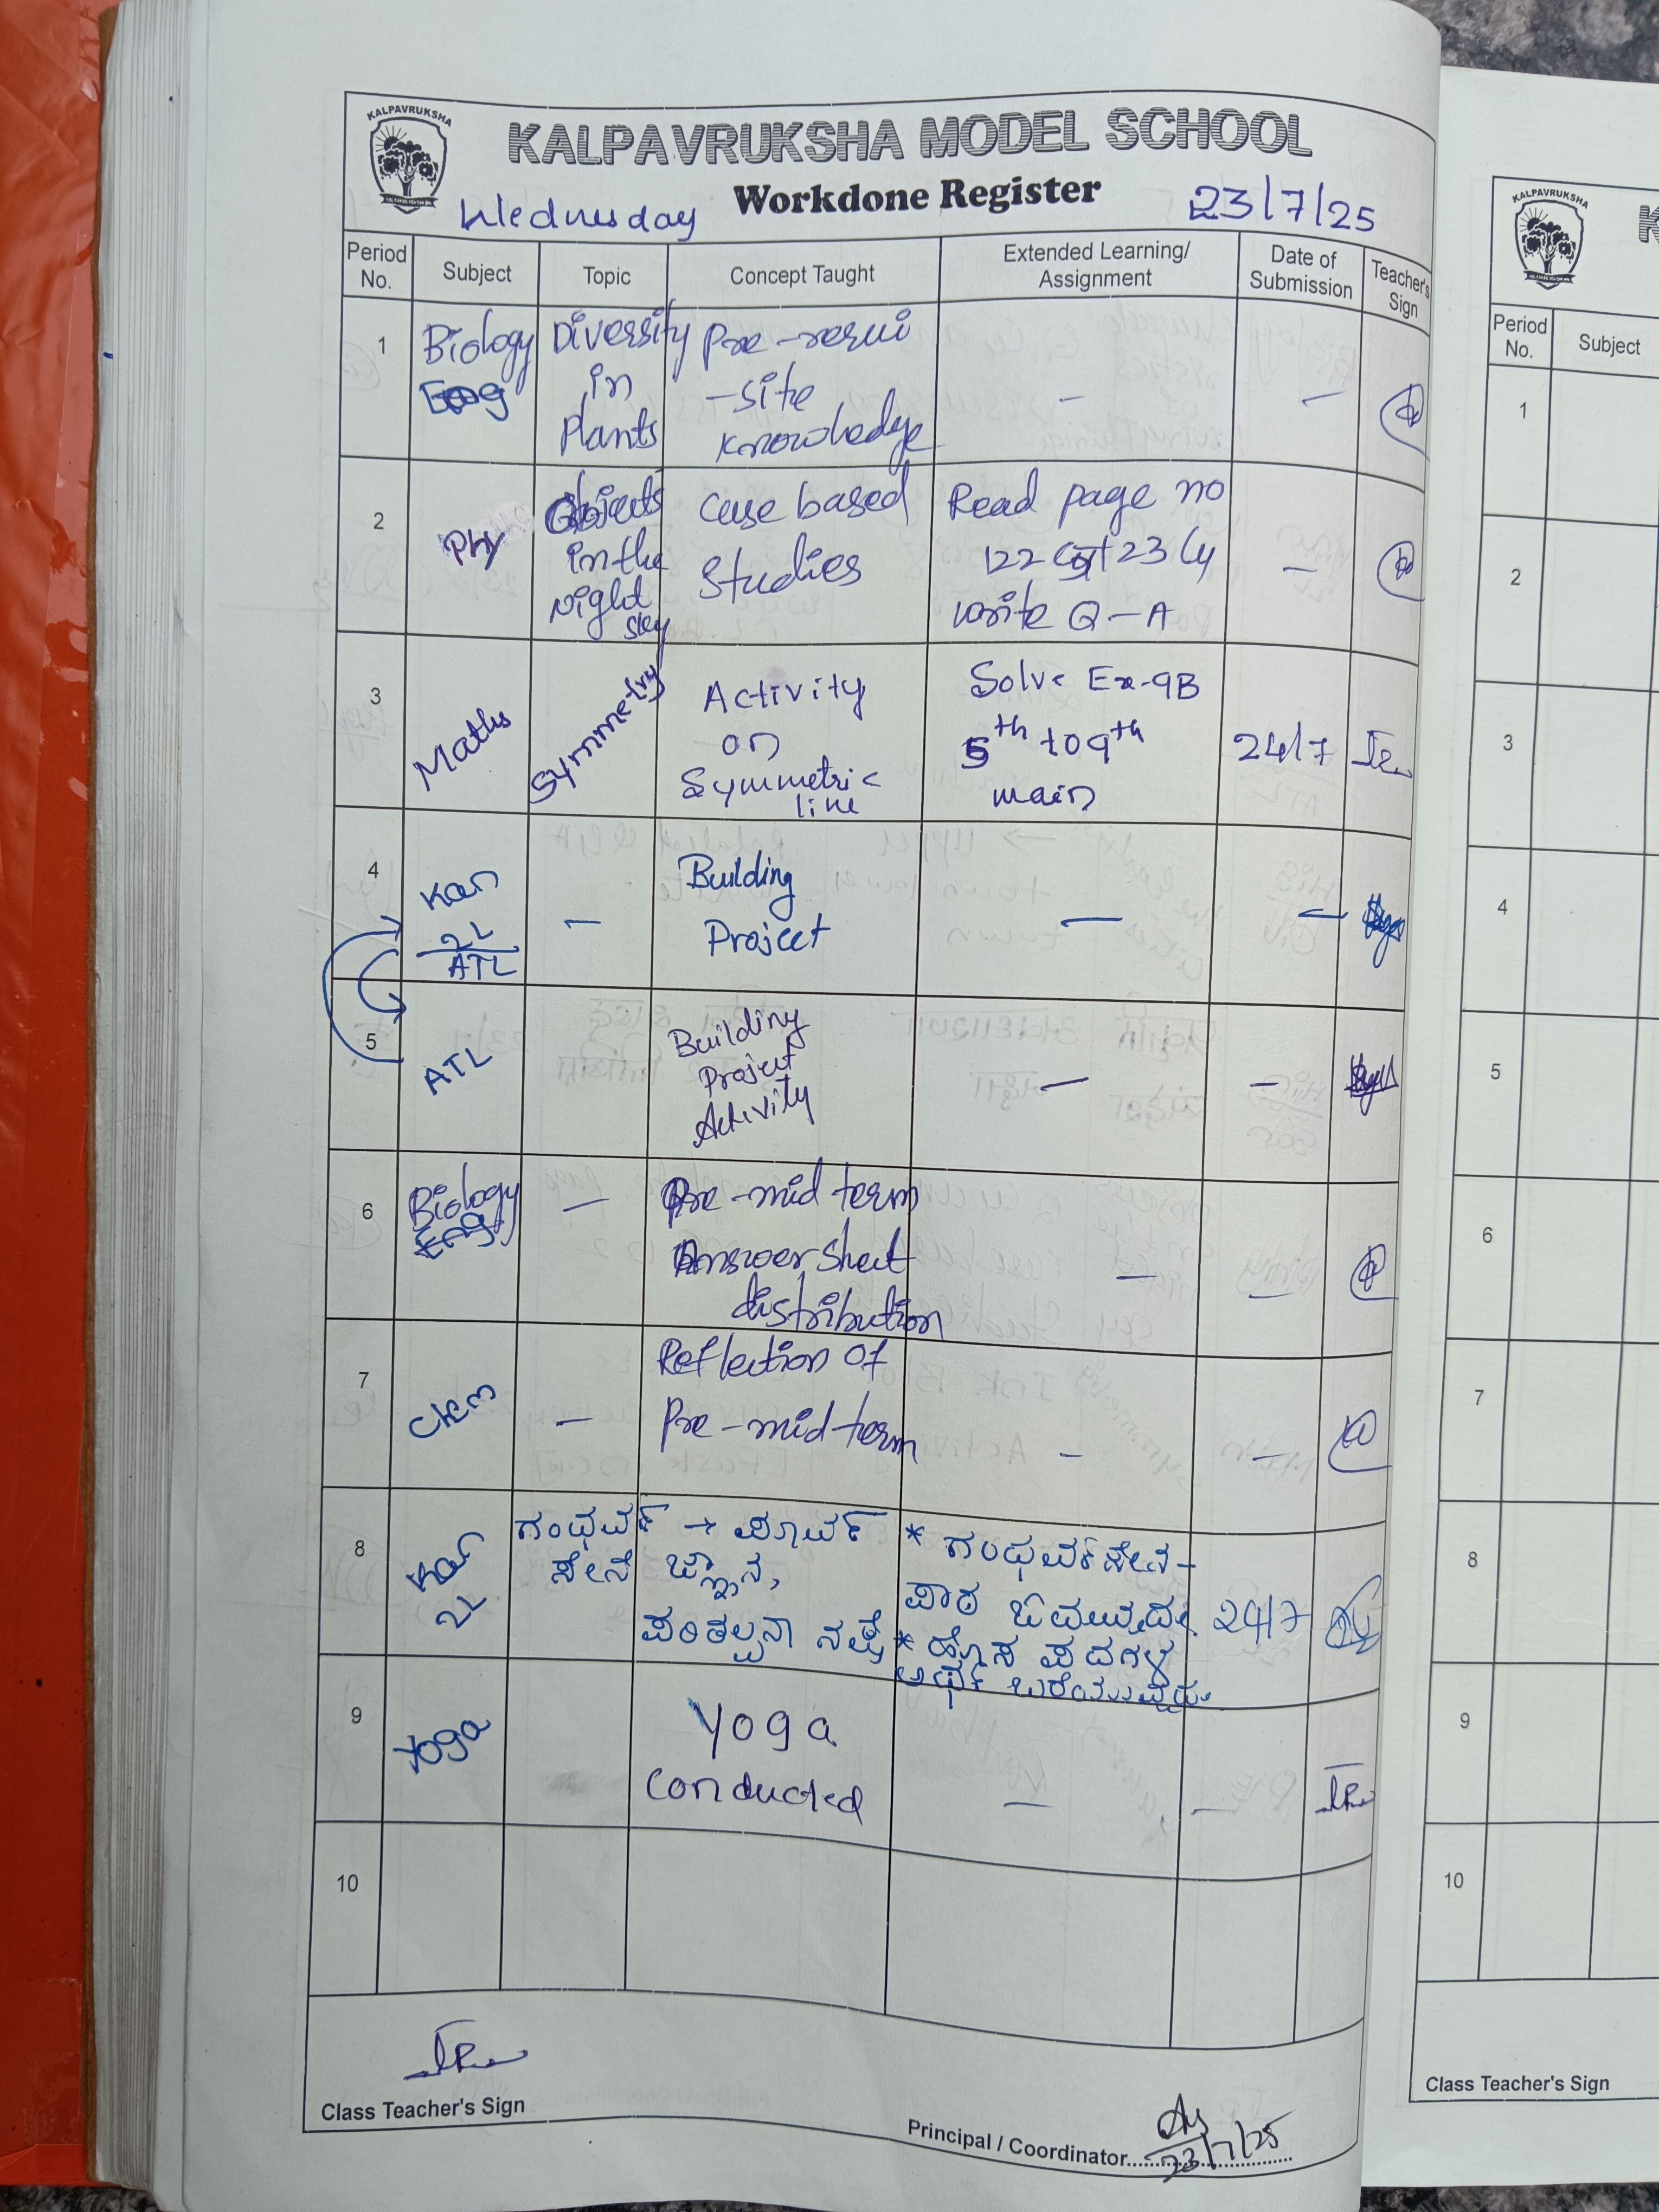 KALPAVRUKSHA
KALPAVRUKSHA MODEL SCHOOL
Workdone Register
Wednesday
23/7/25
Period No.
Subject
Topic
Concept Taught
Extended Learning/
Assignment
Date of
Submission
Teacher's
Sign
1
Biology
Diversity
in
Plants
Pre-requi
-site
knowledge
-
-
2
Phy
Objects
in the
Night
sky
Case based
Studies
Read page no
122
write Q-A
-
3
Maths
Symmetry
Activity
on
Symmetric
line
Solve Ex-9B
5th to 9th
main
24/7
4
Kan
2L
ATL
-
Building
Project
-
-
5
ATL
Building
Project
Activity
-
-
6
Biology
-
Pre-mid term
Answer sheet
distribution
-
-
7
Chem
-
Reflection of
Pre-midterm
-
-
8
Kan
2L
ಗಂಧರ್ವ
ಸೇನೆ
→ ಪೂರ್ವ
ಜ್ಞಾನ,
ಪರಿಕಲ್ಪನಾ ನಕ್ಷೆ
* ಗಂಧರ್ವಸೇನ-
ಪಾಠ ಓದುವುದು.
* ಹೊಸ ಪದಗಳ
ಅರ್ಥ ಬರೆಯುವುದು.
24/7
9
Yoga
Yoga
Conducted
-
-
10
Class Teacher's Sign
Principal / Coordinator
23/7/25
KALPAVRUKSHA
K
Period
No.
Subject
1
2
3
4
5
6
7
8
9
10
Class Teacher's Sign